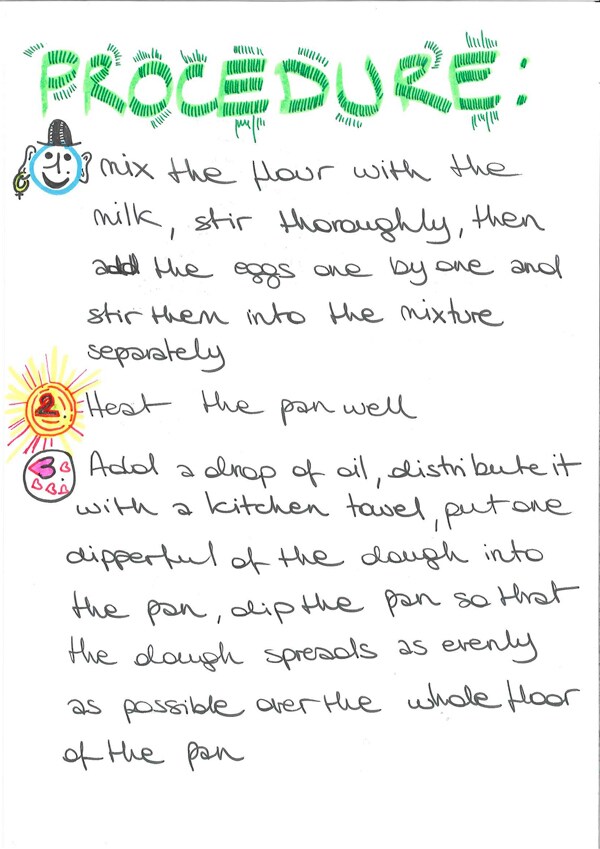 PROCEDURE:
1. mix the flour with the
milk, stir thoroughly, then
add the eggs one by one and
stir them into the mixture
separately
2. Heat the pan well
3. Add a drop of oil, distribute it
with a kitchen towel, put one
dipperful of the dough into
the pan, dip the pan so that
the dough spreads as evenly
as possible over the whole floor
of the pan